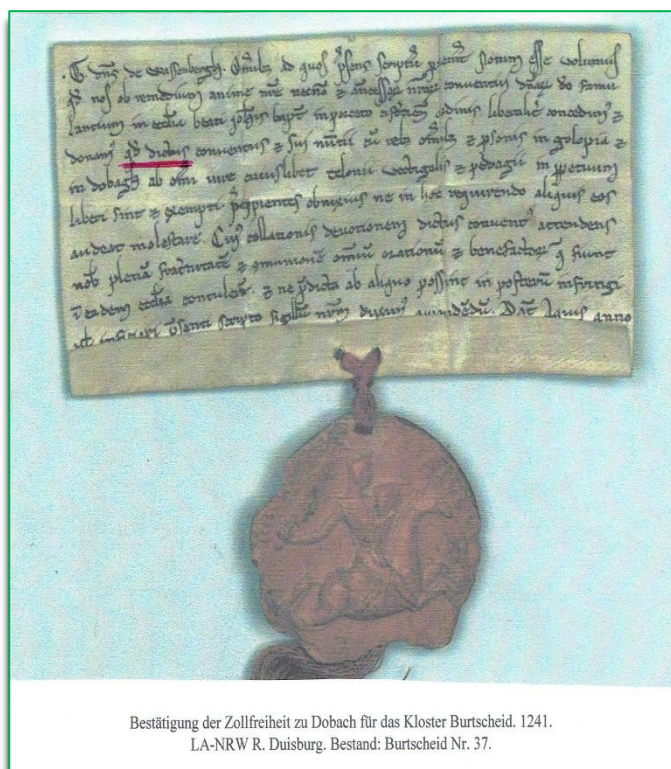 G dñs de Wassenbergh. Om̄ibz ad quos p̄sens scriptū puen̄it notum esse volumus
qd̄ nos ob remedium anime nr̄e necnō & ancessor nr̄or conventui dn̄ar dō famu
lantium in eccl̄ia beati Joh̄is bapt̄ in porceto ordinis liberalit̄ concedimꝰ &
donamꝰ qd̄ dictus conventus & sui nūtii cū rebꝫ om̄ibꝫ & psonis in golopia &
in dobagh ab om̄i iure cuiuslibet telonii vectigalis & pedagii in ppetuum
liberi sint & exempti p̄cipientes obnixius ne in hoc requirendo aliquis eos
audeat molestare. Cuiꝰ collationis devotionem dictus conventꝰ attendens
nob̄ plenā fr̄at̄nitatē & cōmunionē omiū orationū & benefactor q̄ fiunt
ī eadem eccl̄ia & ne p̄dicta ab aliquo possint in posterū infringi
vl̄ infirmari p̄senti scripto sigillū nr̄m duximꝰ Dat̄ Aquis anno
Bestätigung der Zollfreiheit zu Dobach für das Kloster Burtscheid. 1241.
LA-NRW R. Duisburg. Bestand: Burtscheid Nr. 37.